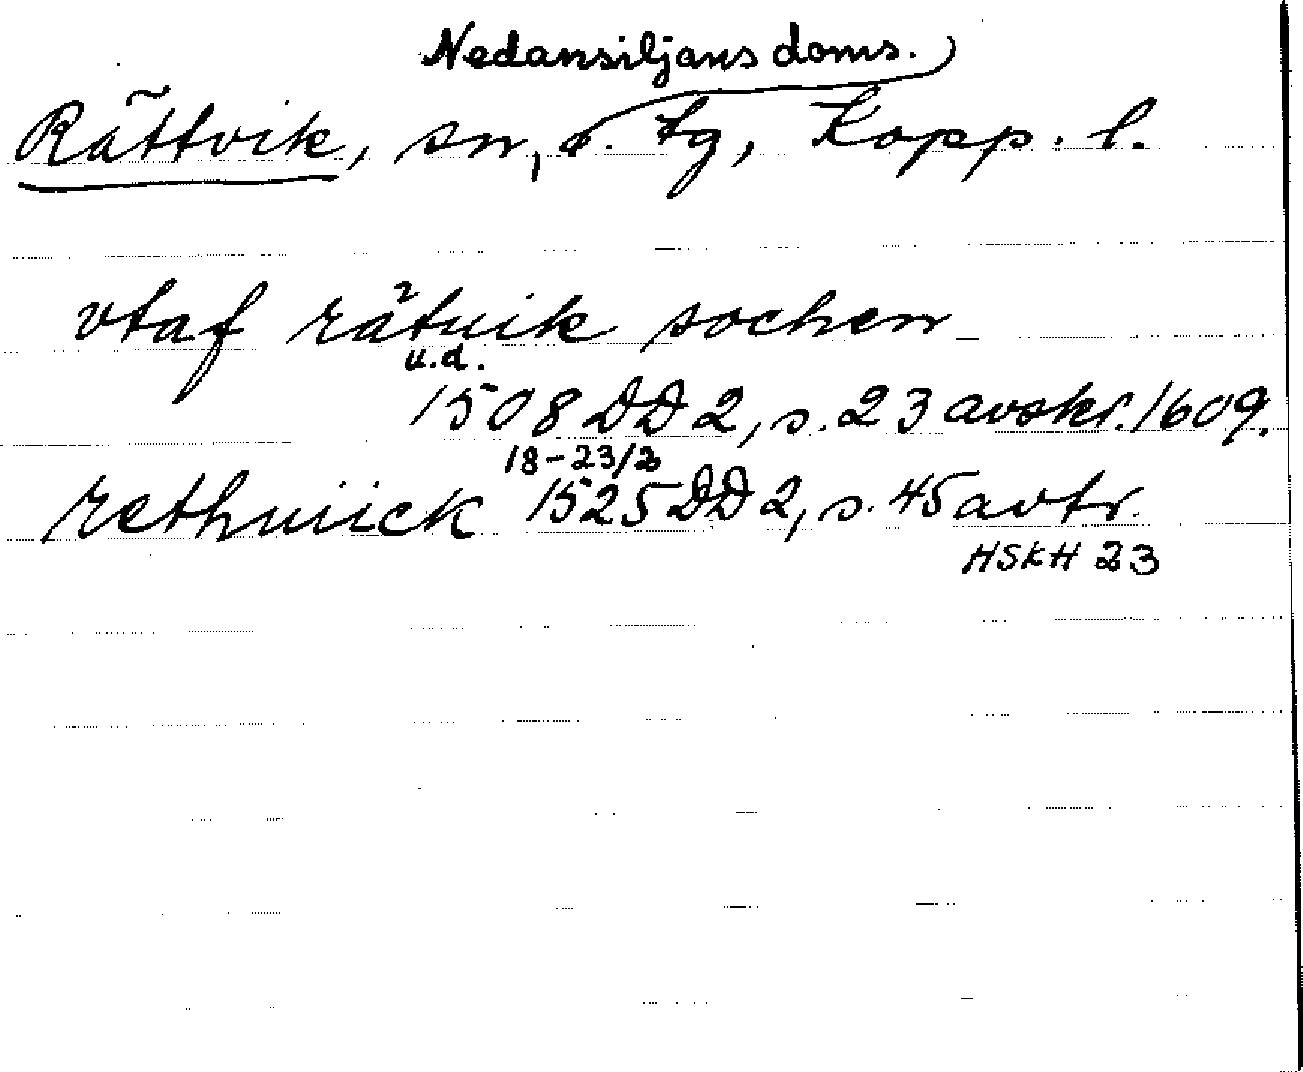 Nedansiljans doms.
Rättvik, sn, s. tg, Kopp. l.
vtaf rätuik sochen
u.d.
1508 DD 2, s. 23 avskr. 1609.
18-23/2
rethwiick 1525 DD 2, s. 45 avtr.
HSKH 23